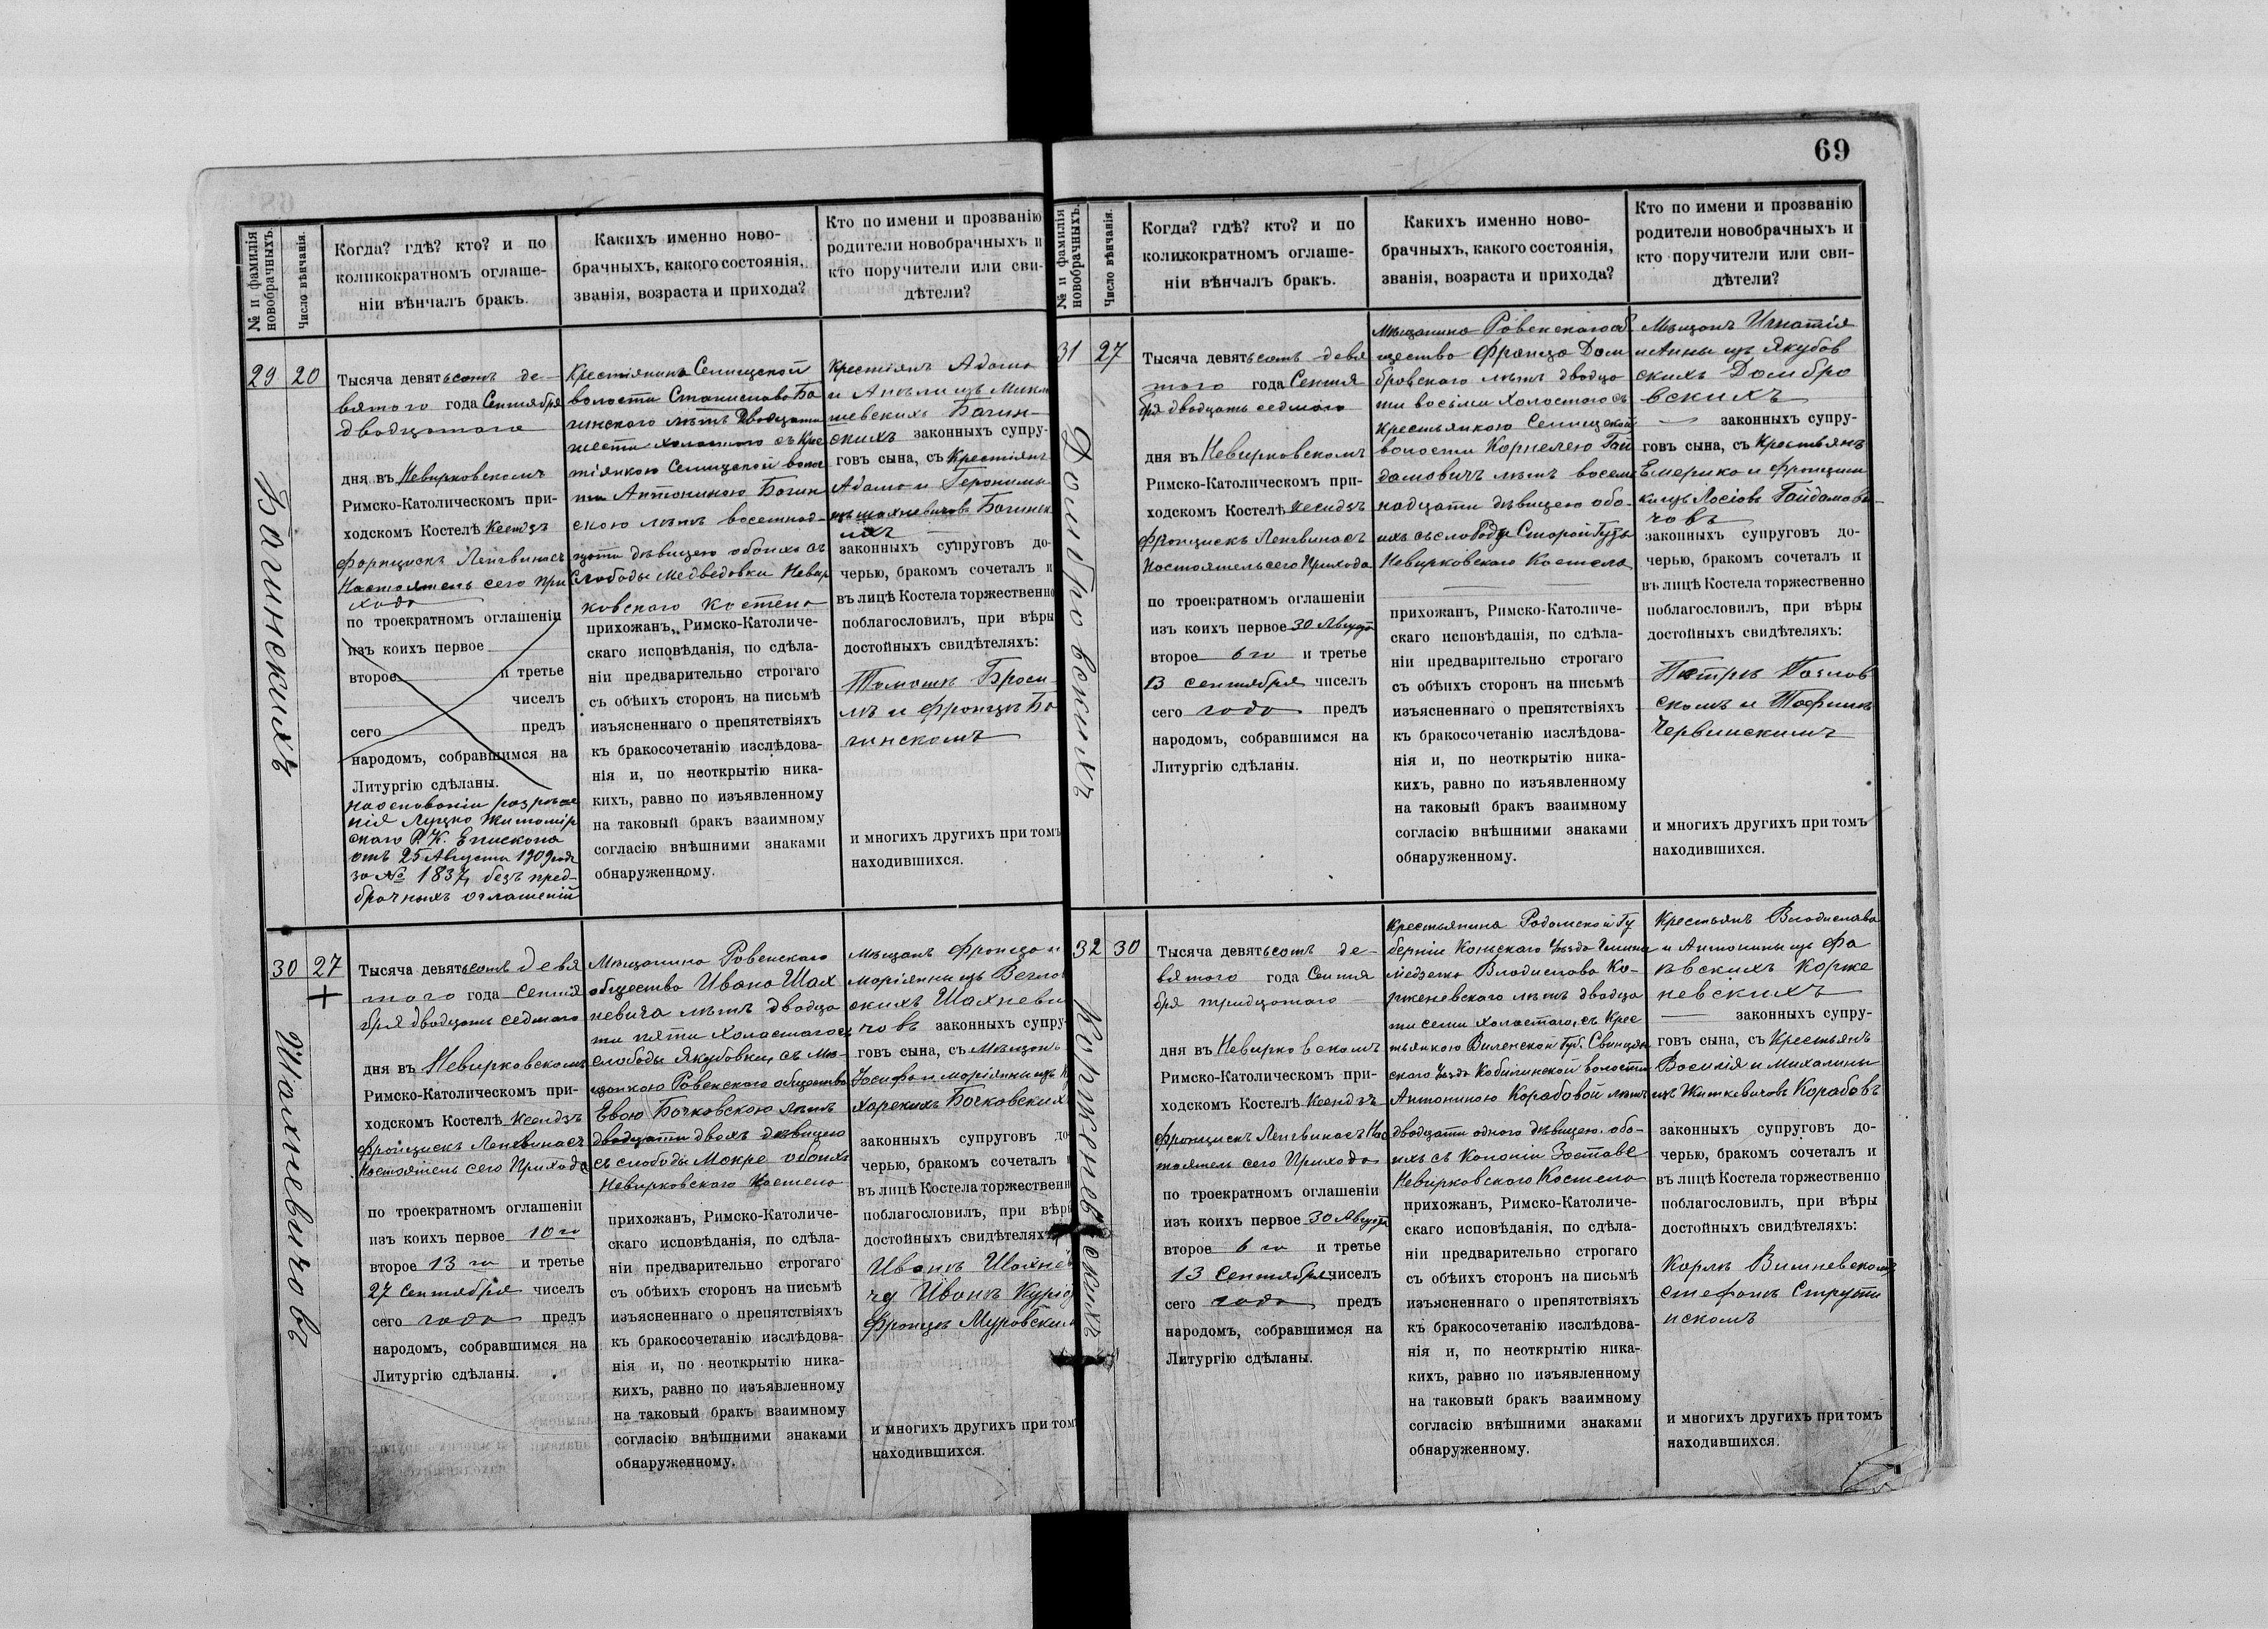 69
№ и фамилія новобрачныхъ.
Число вѣнчанія.
Когда? гдѣ? кто? и по
коликократномъ оглаше-
ніи вѣнчалъ бракъ.
Какихъ именно ново-
брачныхъ, какого состоянія,
званія, возраста и прихода?
Кто по имени и прозванію
родители новобрачныхъ и
кто поручители или сви-
дѣтели?
29
20
Багинскихъ
Тысяча девятьсотъ де-
вятого года Сентября
двадцатаго
дня въ Невирковскомъ
Римско-Католическомъ при-
ходскомъ Костелѣ Ксендзъ
Францискъ Ленгвинасъ
Настоятель сего При
хода
по троекратномъ оглашеніи
изъ коихъ первое
второе и третье
чиселъ
сего предъ
народомъ, собравшимся на
Литургію сдѣланы.
На основаніи разрѣше
нія Луцко Житомір
скаго Р. К. Епископа
отъ 25 Августа 1909 года
за № 1837, безъ пред-
брачныхъ оглашеній
Крестіянина Селищской
волости Станислава Ба
гинского лѣтъ двадцати
шести холостого съ Крес
тіянкою Селищской волос
ти Антониною Багин
скою лѣтъ восемнад-
цати дѣвицею обоихъ съ
Слободы Медведовки Невир
ковского Костела
прихожанъ, Римско-Католиче-
скаго исповѣданія, по сдѣла-
ніи предварительно строгаго
съ обѣихъ сторонъ на письмѣ
изъясненнаго о препятствіяхъ
къ бракосочетанію изслѣдова-
нія и, по неоткрытію ника-
кихъ, равно по изъявленному
на таковый бракъ взаимному
согласію внѣшними знаками
обнаруженному.
Крестіянъ Адама
и Анели изъ Мико
шевскихъ Багин-
скихъ законныхъ супру-
говъ сына, съ Крестіянъ
Адама и Геронимы
изъ Шахневичовъ Багинск
ихъ
законныхъ супруговъ до-
черью, бракомъ сочеталъ и
въ лицѣ Костела торжественно
поблагословилъ, при вѣры
достойныхъ свидѣтеляхъ:
Томашъ
и Францъ Ба
гинскомъ
и многихъ другихъ при томъ
находившихся.
30
27
+
Шахневичовъ
Тысяча девятьсотъ девя
того года Сентя
бря двадцать седмого
дня въ Невирковскомъ
Римско-Католическомъ при-
ходскомъ Костелѣ Ксендзъ
Францискъ Ленгвинасъ
Настоятель сего Прихода
по троекратномъ оглашеніи
изъ коихъ первое 10 го
второе 13 го и третье
27 Сентября чиселъ
сего года предъ
народомъ, собравшимся на
Литургію сдѣланы.
Мѣщанина Ровенского
общества Ивана Шах
невича лѣтъ двадца
ти пяти холостого съ
слободы Якубовки, съ Мѣ-
щанкою Ровенского общества
Евою Бочковскою лѣтъ
двадцати двохъ дѣвицею
съ слободы Мокре обоихъ
Невирковского Костела
прихожанъ, Римско-Католиче-
скаго исповѣданія, по сдѣла-
ніи предварительно строгаго
съ обѣихъ сторонъ на письмѣ
изъясненнаго о препятствіяхъ
къ бракосочетанію изслѣдова-
нія и, по неоткрытію ника-
кихъ, равно по изъявленному
на таковый бракъ взаимному
согласію внѣшними знаками
обнаруженному.
Мѣщанъ Франца и
Маріянны изъ
скихъ Шахневи
човъ законныхъ супру-
говъ сына, съ Мѣщанъ
Іосифа и Маріянны изъ
Бочковскихъ
законныхъ супруговъ до-
черью, бракомъ сочеталъ и
въ лицѣ Костела торжественно
поблагословилъ, при вѣры
достойныхъ свидѣтеляхъ:
Иванъ Шахне
Иванъ
Францъ Муровским
и многихъ другихъ при томъ
находившихся.
№ и фамилія новобрачныхъ.
Число вѣнчанія.
Когда? гдѣ? кто? и по
коликократномъ оглаше-
ніи вѣнчалъ бракъ.
Какихъ именно ново-
брачныхъ, какого состоянія,
званія, возраста и прихода?
Кто по имени и прозванію
родители новобрачныхъ и
кто поручители или сви-
дѣтели?
31
27
Домбровскихъ
Тысяча девятьсотъ девя
того года Сентя
бря двадцать седмого
дня въ Невирковскомъ
Римско-Католическомъ при-
ходскомъ Костелѣ Ксендзъ
Францискъ Ленгвинасъ
Настоятель сего Прихода
по троекратномъ оглашеніи
изъ коихъ первое 30 Августа
второе 6 го и третье
13 Сентября чиселъ
сего года предъ
народомъ, собравшимся на
Литургію сдѣланы.
Мѣщанина Ровенского об
щества Франца Дом
бровского лѣтъ двадца
ти восьми холостого съ
Крестьянкою Селищской
волости Корнелею Гай
дамовичъ лѣтъ восем
надцати дѣвицею обо-
ихъ съ слободы Старой Гуты
Невирковского Костела
прихожанъ, Римско-Католиче-
скаго исповѣданія, по сдѣла-
ніи предварительно строгаго
съ обѣихъ сторонъ на письмѣ
изъясненнаго о препятствіяхъ
къ бракосочетанію изслѣдова-
нія и, по неоткрытію ника-
кихъ, равно по изъявленному
на таковый бракъ взаимному
согласію внѣшними знаками
обнаруженному.
Мѣщанъ Игнатія
и Анны изъ Якубов
скихъ Домбро
вскихъ
законныхъ супру-
говъ сына, съ Крестьянъ
Емерика и Францишки
изъ Лосіовъ Гайдамови-
човъ
законныхъ супруговъ до-
черью, бракомъ сочеталъ и
въ лицѣ Костела торжественно
поблагословилъ, при вѣры
достойныхъ свидѣтеляхъ:
Петръ Козлов
скомъ и Тофилъ
Червинскимъ
и многихъ другихъ при томъ
находившихся.
32
30
Корженевскихъ
Тысяча девятьсотъ де-
вятого года Сентя
бря тридцатого
дня въ Невирковскомъ
Римско-Католическомъ при-
ходскомъ Костелѣ Ксендзъ
Францискъ Ленгвинасъ Нас
тоятель сего Прихода
по троекратномъ оглашеніи
изъ коихъ первое 30 Августа
второе 6 го и третье
13 Сентября чиселъ
сего года предъ
народомъ, собравшимся на
Литургію сдѣланы.
Крестьянина Радомской Гу
берніи Коньского Уѣзда Гмина
Владислава Ко-
рженевского лѣтъ двадца
ти семи холостого, съ Крес
тьянкою Виленской Губ. Свинцян
ского Уѣзда Кобыльнской волости
Антониною Корабовой лѣтъ
двадцати одного дѣвицею обо-
ихъ съ Колоніи Заставе
Невирковского Костела
прихожанъ, Римско-Католиче-
скаго исповѣданія, по сдѣла-
ніи предварительно строгаго
съ обѣихъ сторонъ на письмѣ
изъясненнаго о препятствіяхъ
къ бракосочетанію изслѣдова-
нія и, по неоткрытію ника-
кихъ, равно по изъявленному
на таковый бракъ взаимному
согласію внѣшними знаками
обнаруженному.
Крестьянъ Владислава
и Антонины изъ
Корже
невскихъ
законныхъ супру-
говъ сына, съ Крестьянъ
Василія и Михалины
изъ Жилкевичовъ Корабовъ
законныхъ супруговъ до-
черью, бракомъ сочеталъ и
въ лицѣ Костела торжественно
поблагословилъ, при вѣры
достойныхъ свидѣтеляхъ:
Карлъ Вишневскомъ
Стефанъ Струти
нскомъ
и многихъ другихъ при томъ
находившихся.